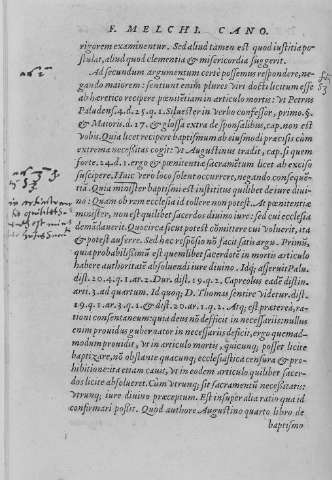 F. MELCHI. CANO.
rigorem examinentur. Sed aliud tamen est quod iustitia postulat, aliud quod clementia & misericordia suggerit.
Ad secundum argumentum certè possemus respondere, negando maiorem: sentiunt enim plures viri docti licitum esse ab hæretico recipere pœnitẽtiam in articulo mortis: vt Petrus
Paludens. 4. d. 25. q. 1. Siluester in verbo confessor, primo. §.
& Maioris. d. 17. & glossa extra de sponsalibus, cap. non est
vobis. Quia licet recipere baptismum ab eiusmodi præcisis cùm
extrema necessitas cogit: vt Augustinus tradit, cap. si quem
forte. 24. d. 1. ergo & pœnitentiæ sacramẽtum licet ab exciso
suscipere. Huic vero loco solent occurrere, negando consequẽtiã.
Quia minister baptismi ab institutus quilibet de iure diuino: Quam ob rem ecclesia id tollere non potest. At pœnitentiæ
minister, non est quilibet sacerdos diuino iure: sed cui ecclesia
demãdauerit. Quocirca sicut potest cõmittere cui voluerit, ita
& potest auferre. Sed hæc respõsio nõ facit satis argu. Primũ,
quia probabilissimũ est quemlibet sacerdotẽ in mortis articulo
habere authoritatẽ absoluendi iure diuino. Idq; asseruit Palu.
dist. 20. q. 1. ar. 2. Dur. dist. 19. q. 2. Capreolus eadẽ distin.
arti. 3. ad quartum. Id quoq; D. Thomas sentire videtur. dist.
19. q. 1. ar. 3. q. 1. & dist. 20. ar. 1. q. 2. Atq; est prætereà, rationi consentaneum: quia deus nõ deficit in necessariis: nullus
enim prouidus gubernator in necessariis deficit, ergo quemadmodum prouidit, vt in articulo mortis, quicunq; posset licite
baptizare, nõ obstante quacunq; ecclesiastica censura & prohibitione: ita etiam cauit, vt in eodem articulo quilibet sacerdos licite absolueret. Cùm vtrunq; sit sacramentũ necessitatis:
vtrunq; iure diuino præceptum. Est insuper alia ratio qua id
confirmari possit. Quod authore Augustino quarto libro de
baptismo